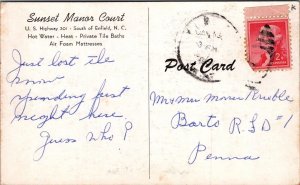 Sunset Manor Court
U. S. Highway 301 - South of Enfield, N. C.
Hot Water - Heat - Private Tile Baths
Air Foam Mattresses
Post Card
Just lost the
snow
spending first
night here
Guess who?
Mr & Mrs Krible
Barto R.F.D #1
Penna